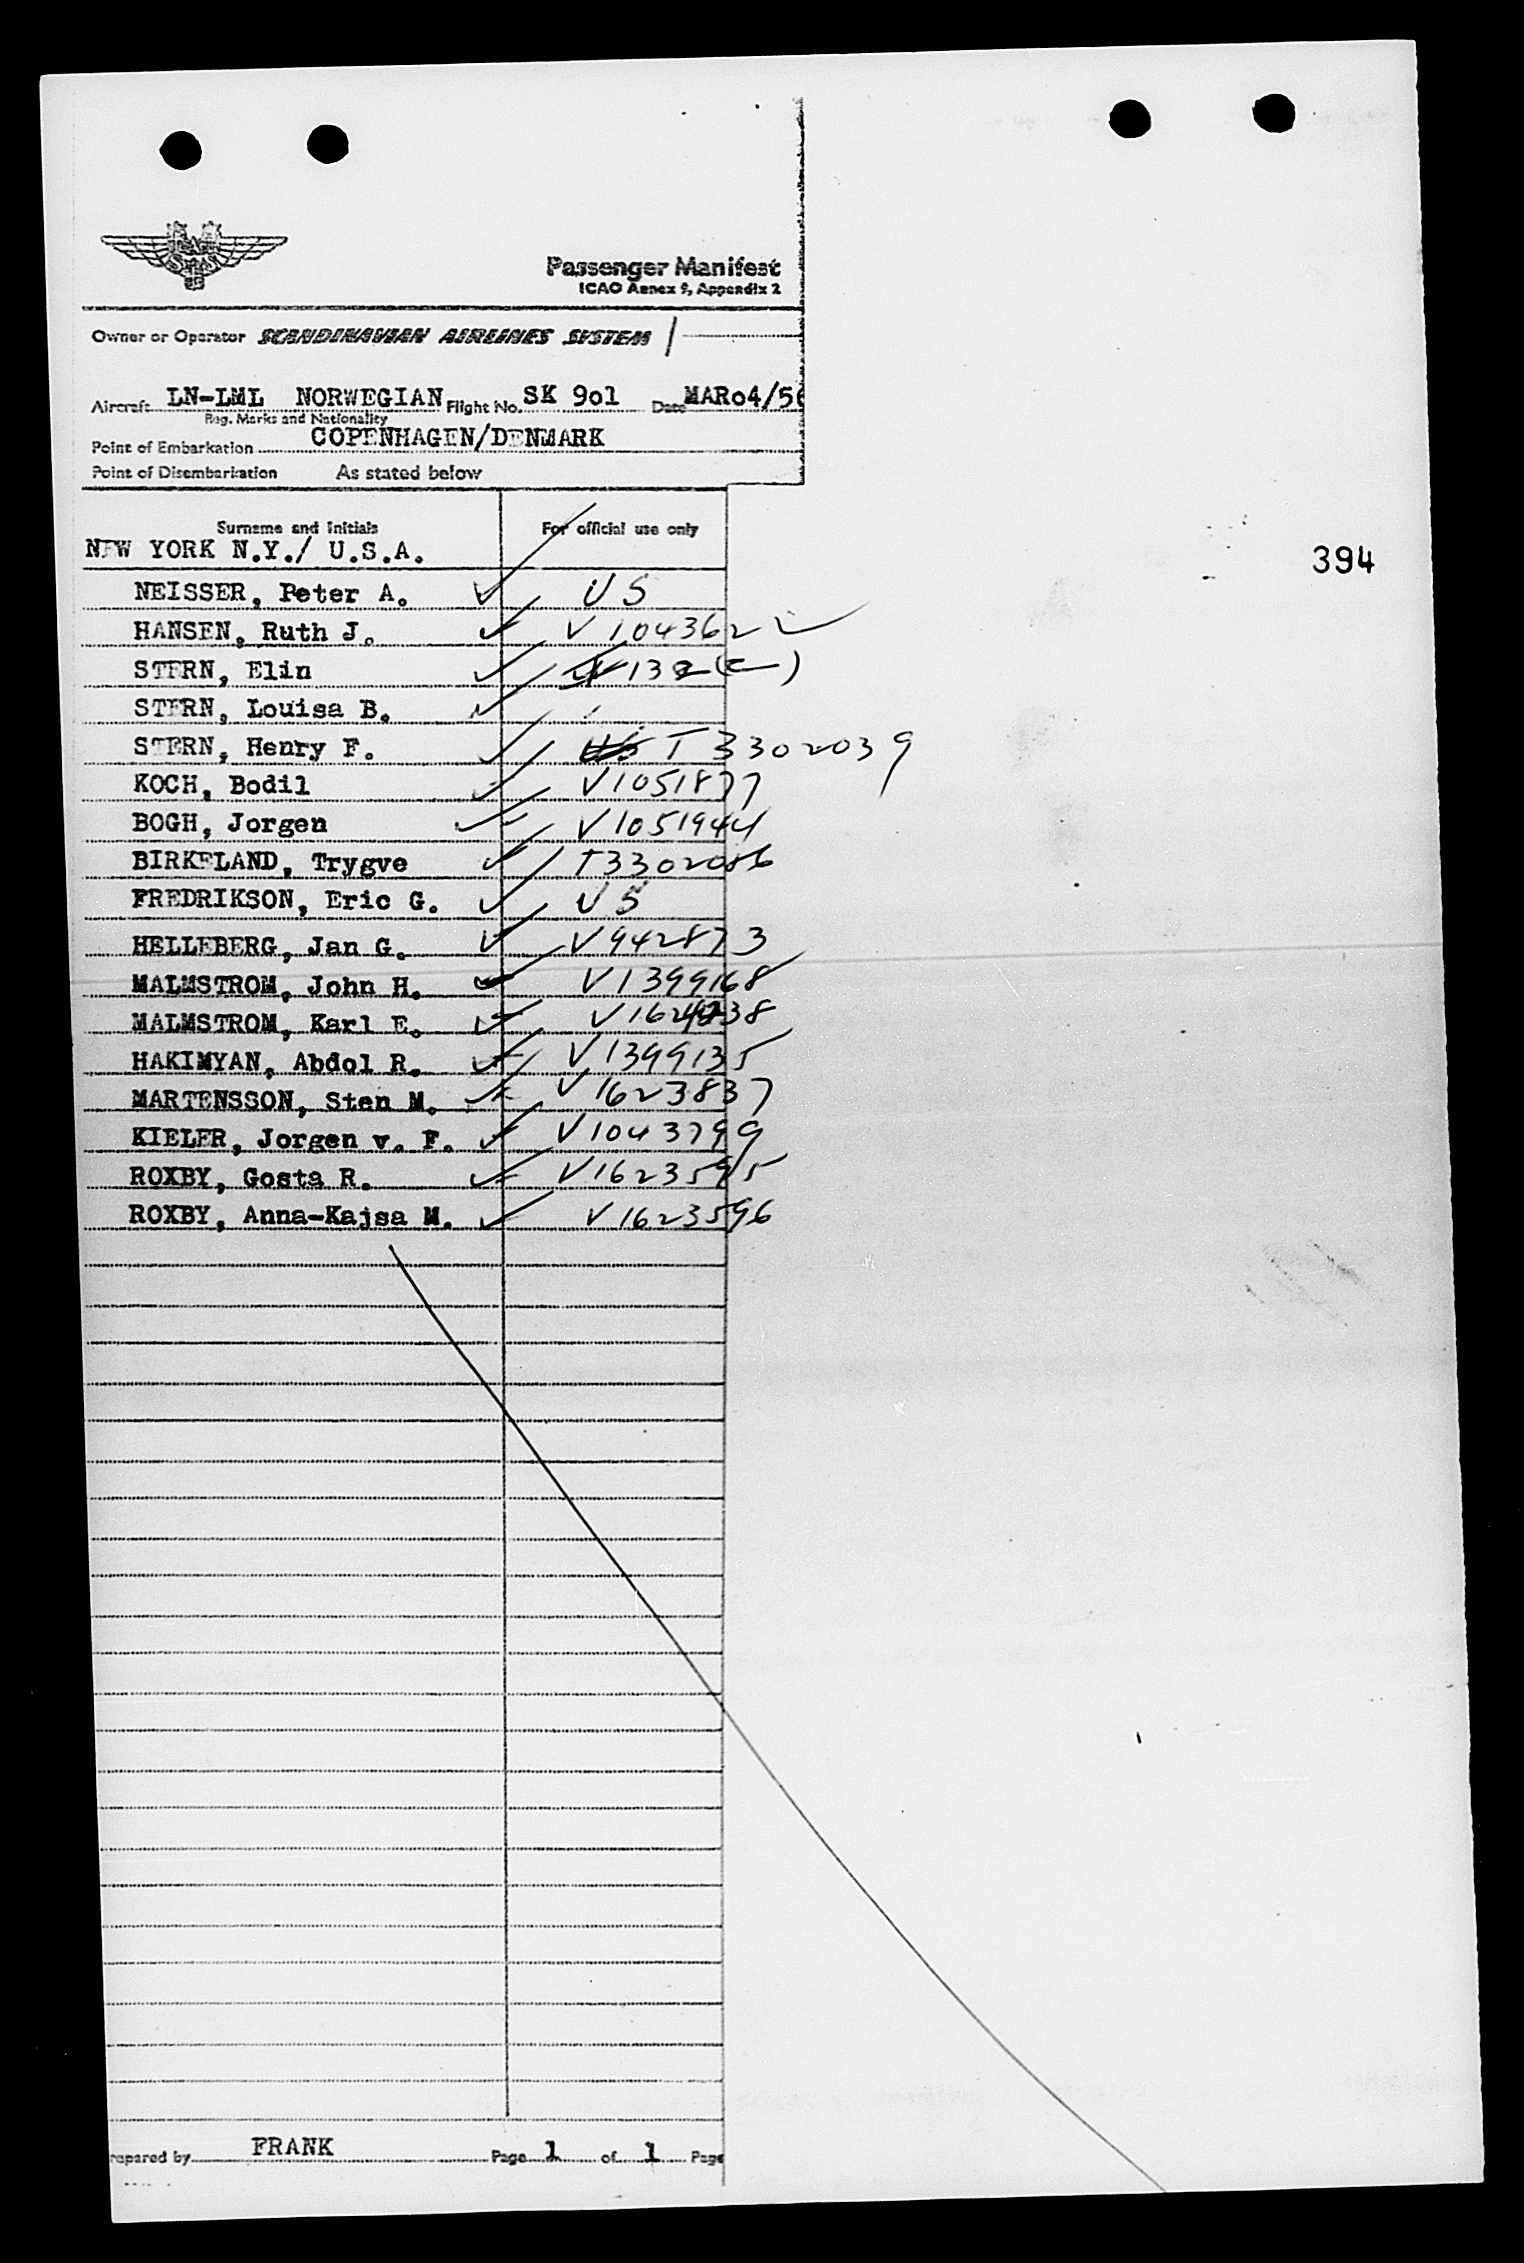 SAS
Passenger Manifest
ICAO Annex 9, Appendix 2
Owner or Operator SCANDINAVIAN AIRLINES SYSTEM /
Aircraft LN-LML NORWEGIAN Flight No. SK 9o1 Date MARo4/56
Reg. Marks and Nationality
Point of Embarkation COPENHAGEN/DENMARK
Point of Disembarkation As stated below
Surname and Initials For official use only
NEW YORK N.Y./ U.S.A.
394
NEISSER, Peter A. US
HANSEN, Ruth J. V 1043622
STERN, Elin
STERN, Louisa B.
STERN, Henry F. T 3302039
KOCH, Bodil V1051877
BOGH, Jorgen V1051944
BIRKELAND, Trygve T3302086
FREDRIKSON, Eric G. US
HELLEBERG, Jan G. V942873
MALMSTROM, John H. V1399168
MALMSTROM, Karl E.
HAKIMYAN, Abdol R. V1399135
MARTENSSON, Sten M. V 1623837
KIELER, Jorgen v. F. V1043799
ROXBY, Gosta R. V1623595
ROXBY, Anna-Kajsa M. V 1623596
repared by FRANK Page 1 of 1 Page